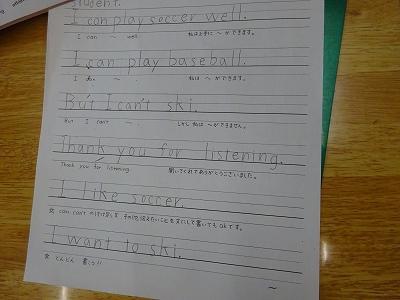 student.
I can play soccer well.
I can ～ well. 私は上手に ～ができます。
I can play baseball.
I can ～ . 私は ～ができます。
But I can't ski.
But I can't ～ . しかし 私は ～ができません。
Thank you for listening.
Thank you for listening. 聞いてくれてありがとうございました。
I like soccer.
can can't その他伝えたいことを文にして書いてもOKです。
I want to ski.
どんどん 書こう!!
～